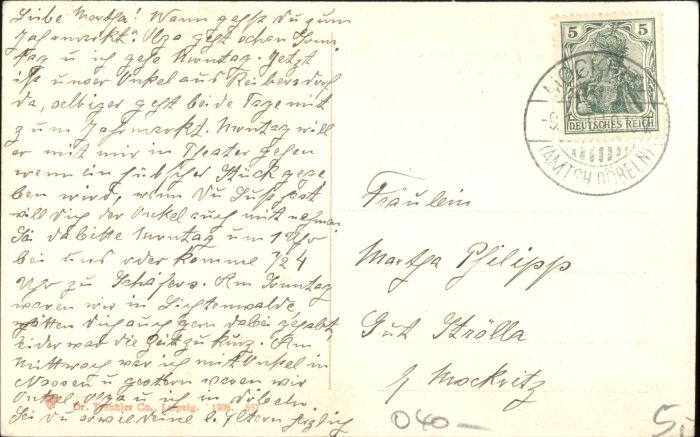 Liebe Martha! Wann gehst Du zum
Jahrmarkt? Olga geht schon Sonn
tag u ich gehe Montag. Jetzt
ist unser Onkel aus Reibersdorf
da, selbiger geht beide Tage mit
zum Jahrmarkt. Montag will
er mit mir in Theater gehen
wenn ein hübsches Stück gege
ben wird, wenn Du Lust hast
will Dich der Onkel auch mit nehmen
Sei da bitte Montag um 1 Uhr
bei uns oder komme 1/2 4
Uhr zu Schäfers. Am Sonntag
waren wir in Lichtenwalde,
hätten Dich auch gern dabei gehabt,
leider war die Zeit zu kurz. Am
Mittwoch war ich mit Onkel in
Nossen u gestern waren wir
Onkel, Olga u ich in Döbeln.
Sei Du sowie Deine l. Eltern herzlich
Dr. Trenkler Co., Leipzig. 1908.
5 5
DEUTSCHES REICH
(AMTSH. DÖBELN)
Fräulein
Martha Philipp
Gut Strölla
b/ Mockritz
040 —
5,-